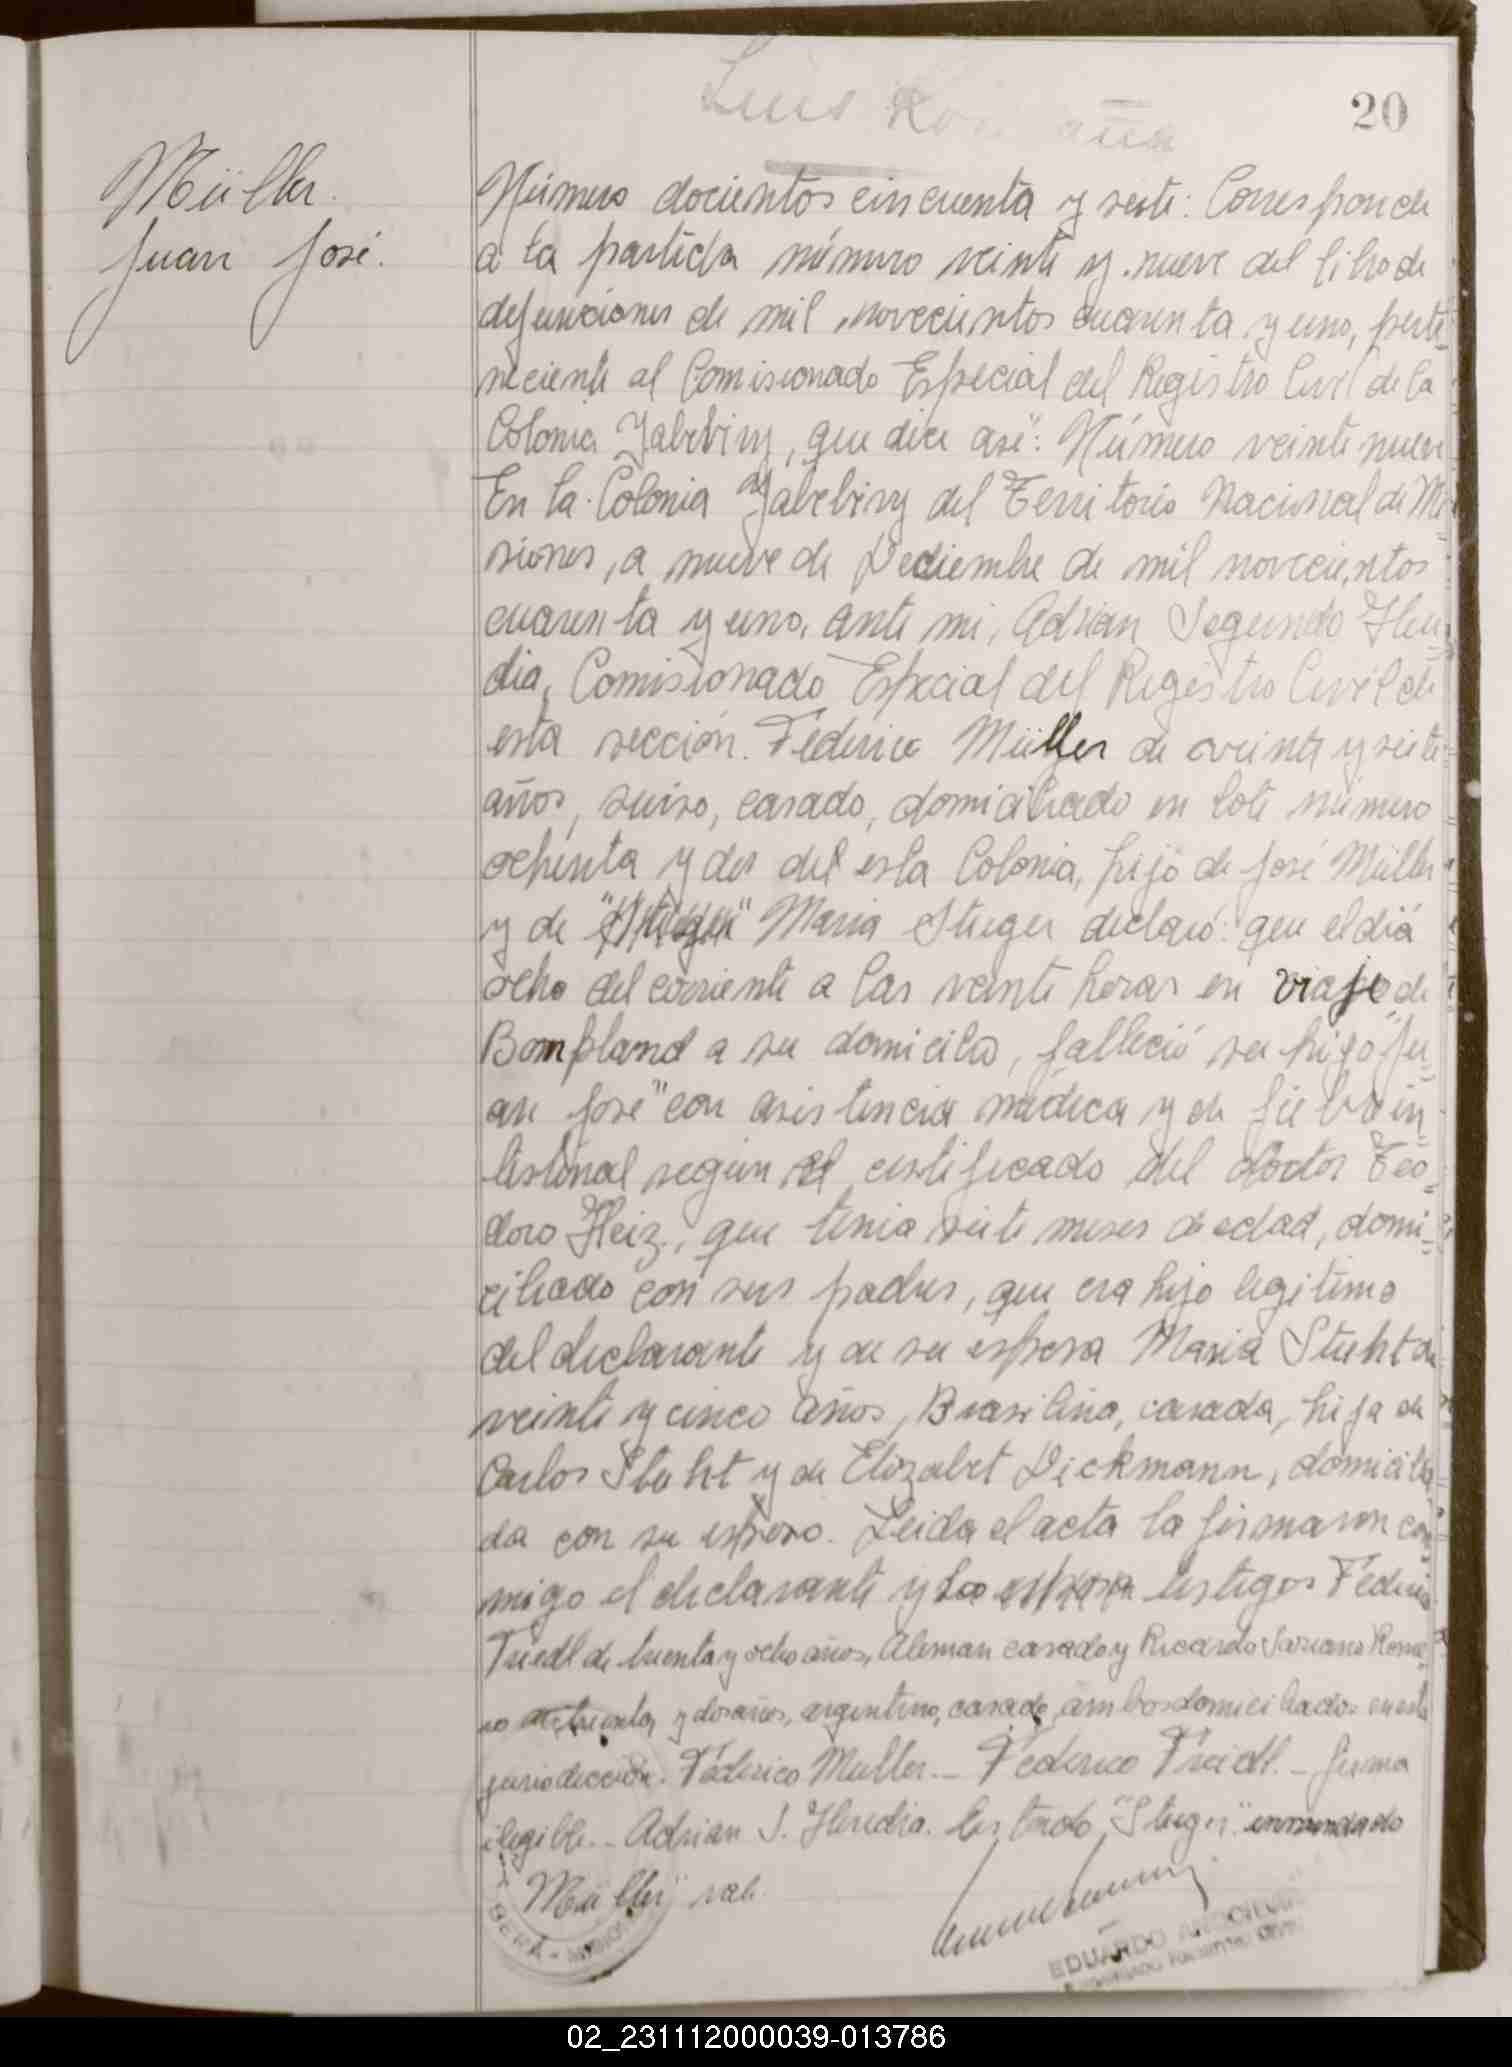 20
Müller
Juan José.
Número docientos cincuenta y siete: Corresponde
a la partida número veinte y nueve del libro de
defunciones de mil novecientos cuarenta y uno, perte-
neciente al Comisionado Especial del Registro Civil de la
Colonia Yabebiry, que dice asi": Número veinte nueve
En la Colonia Yabebiry del Territorio Nacional de Mi-
siones, a nueve de Deciembre de mil novecientos
cuarenta y uno, ante mi, Adrian Segundo Here-
dia, Comisionado Especial del Registro Civil de
esta sección. Federico Müller de veinte y siete
años, suizo, casado, domiciliado en lote número
ochenta y dos del esta Colonia, hijo de José Müller
y de Maria Stieger declaró: que el dia
ocho del corriente a las veinte horas en viaje de
Bompland a su domicilio, falleció su hijo "Ju-
an José" con asistencia médica y de fiebre in-
testinal según el certificado del doctor Teo-
doro Heiz, que tenia siete meses de edad, domi-
ciliado con sus padres, que era hijo legitimo
del declarante y de su esposa Maria Stuht de
veinte y cinco años, Brasileña, casada, hija de
Carlos Stuht y de Elizabet Dickmann, domicilia-
da con su esposo. Leida el acta la firmaron con-
migo el declarante y los testigos Federico
Triedl de treinta y ocho años, Aleman casado y Ricardo Rome-
ro de treinta y dos años, argentino, casado, ambos domiciliados en esta
jurisdicción. Federico Muller.- Federico Triedl.- firma
ilegible.- Adrian S. Heredia. Testado "Stieger" enmendado
"Müller" vale.
EDUARDO
02_231112000039-013786